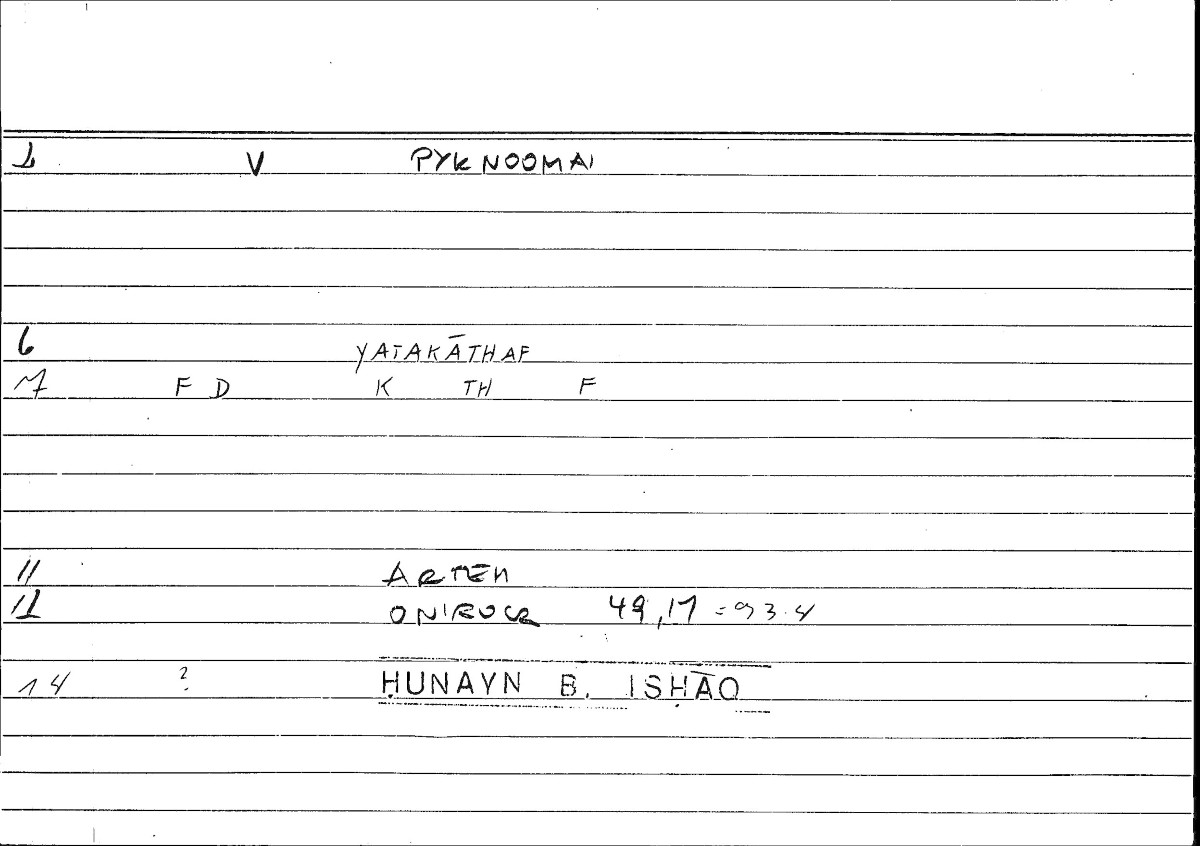 1 V PYKNOOMAI
6 YATAKĀTHAF
7 F D K TH F
11 ARTEM
12 ONIROCR 49,17 = 93.4
14 ? ḤUNAYN B. ISḤĀQ